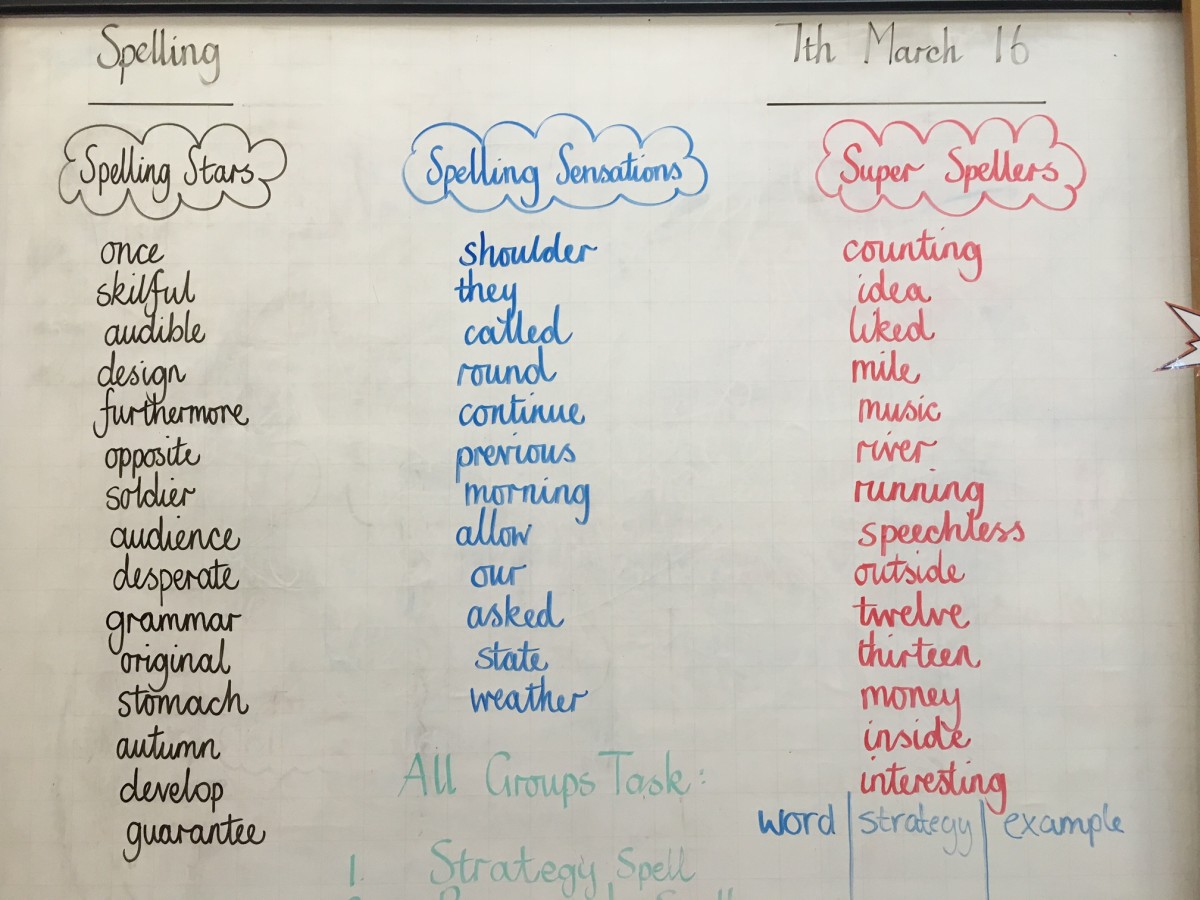 Spelling
7th March 16
Spelling Stars
once
skilful
audible
design
furthermore
opposite
soldier
audience
desperate
grammar
original
stomach
autumn
develop
guarantee
Spelling Sensations
shoulder
they
called
round
continue
previous
morning
allow
our
asked
state
weather
Super Spellers
counting
idea
liked
mile
music
river
running
speechless
outside
twelve
thirteen
money
inside
interesting
All Groups Task:
1. Strategy Spell
word strategy example